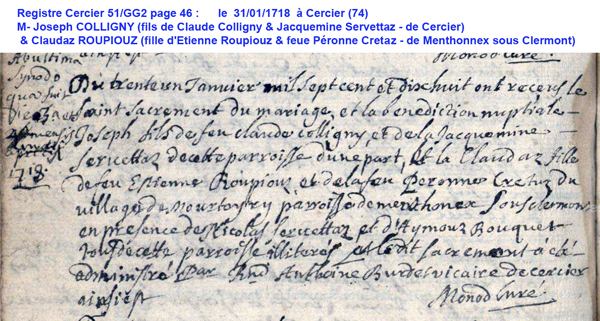 Registre Cercier 51/GG2 page 46 : le 31/01/1718 à Cercier (74)
M- Joseph COLLIGNY (fils de Claude Colligny & Jacquemine Servettaz - de Cercier)
& Claudaz ROUPIOUZ (fille d'Etienne Roupiouz & feue Péronne Cretaz - de Menthonnex sous Clermont)
Monod Curé
Du trenteun Janvier mil sept cent et dixhuit ont receus le
saint sacrement du mariage, et la benediction nuptiale
Joseph fils de feu claude colligny et de la Jacquemine
servettaz de cette parroisse d'une part, et la Claudaz fille
de feu Estienne Roupiouz et de la feu Peronne Cretaz du
village de parroisse de menthonex sous clermont
en presence de Nicolas servettaz et d'Aymoz Bouquet
tous de cette parroisse illiterés et le dit sacrement à été
administré Par Rnd Anthoine Burdet vicaire de cercier
ainsi est
Monod Curé
1718.